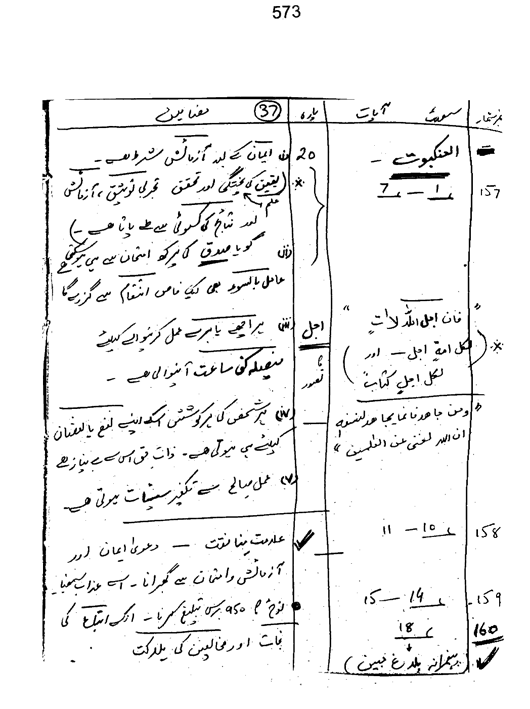 573
نمبر شمار سورت آیات پارہ 37 مضامین
العنکبوت 20 (i) ایمان کے لیے آزمائش شرط ہے۔
157 1 — 7 * (یقین کی پختگی اور تحقق تجربی توثیق، آزمائش
علم اور نتائج کی کسوٹی سے طے پاتا ہے۔)
(ii) گویا صدق کی پرکھ امتحان سے ہی ہو سکتی ہے
عامل بالسوء بھی ایک خاص انتقام سے گزرے گا
"فان اجل اللہ لاٰت" اجل (iii) ہر اچھے یا برے عمل کرنیوالے کیلئے
* (لکل امۃ اجل — اور کا تصور فیصلہ کی ساعت آنیوالی ہے۔
لکل اجل کتاب)
"ومن جاھد فانما یجاھد لنفسہ (iv) ہر شخص کی ہر کوشش اسکے اپنے نفع یا نقصان
ان اللہ لغنی عن العٰلمین" کیلئے ہی ہوتی ہے۔ ذات حق اس سے بے نیاز ہے
(v) عمل صالح سے تکفیر سیئات ہوتی ہے۔
158 10 — 11 علامت منافقت — دعویٰ ایمان اور
آزمائش و امتحان سے گھبرانا۔ اسے عذاب سمجھنا۔
159 14 — 15 نوحؑ کا 950 برس تبلیغ کرنا۔ انکے اتباع کی
160 18 نجات اور مخالفین کی ہلاکت
(پیغمبرانہ بلاغ مبین)